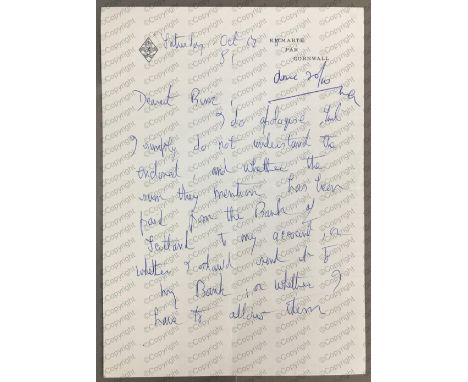 Saturday Oct 13
KILMARTH
PAR
CORNWALL
81
done 20/10
Dearest Bim,
I do apologise but
I simply do not understand the
enclosed, and whether the
sum they mention has been
paid from the Bank of
Scotland to my account, or
whether I should send it to
my Bank, or whether I
have to allow them
©Copyright